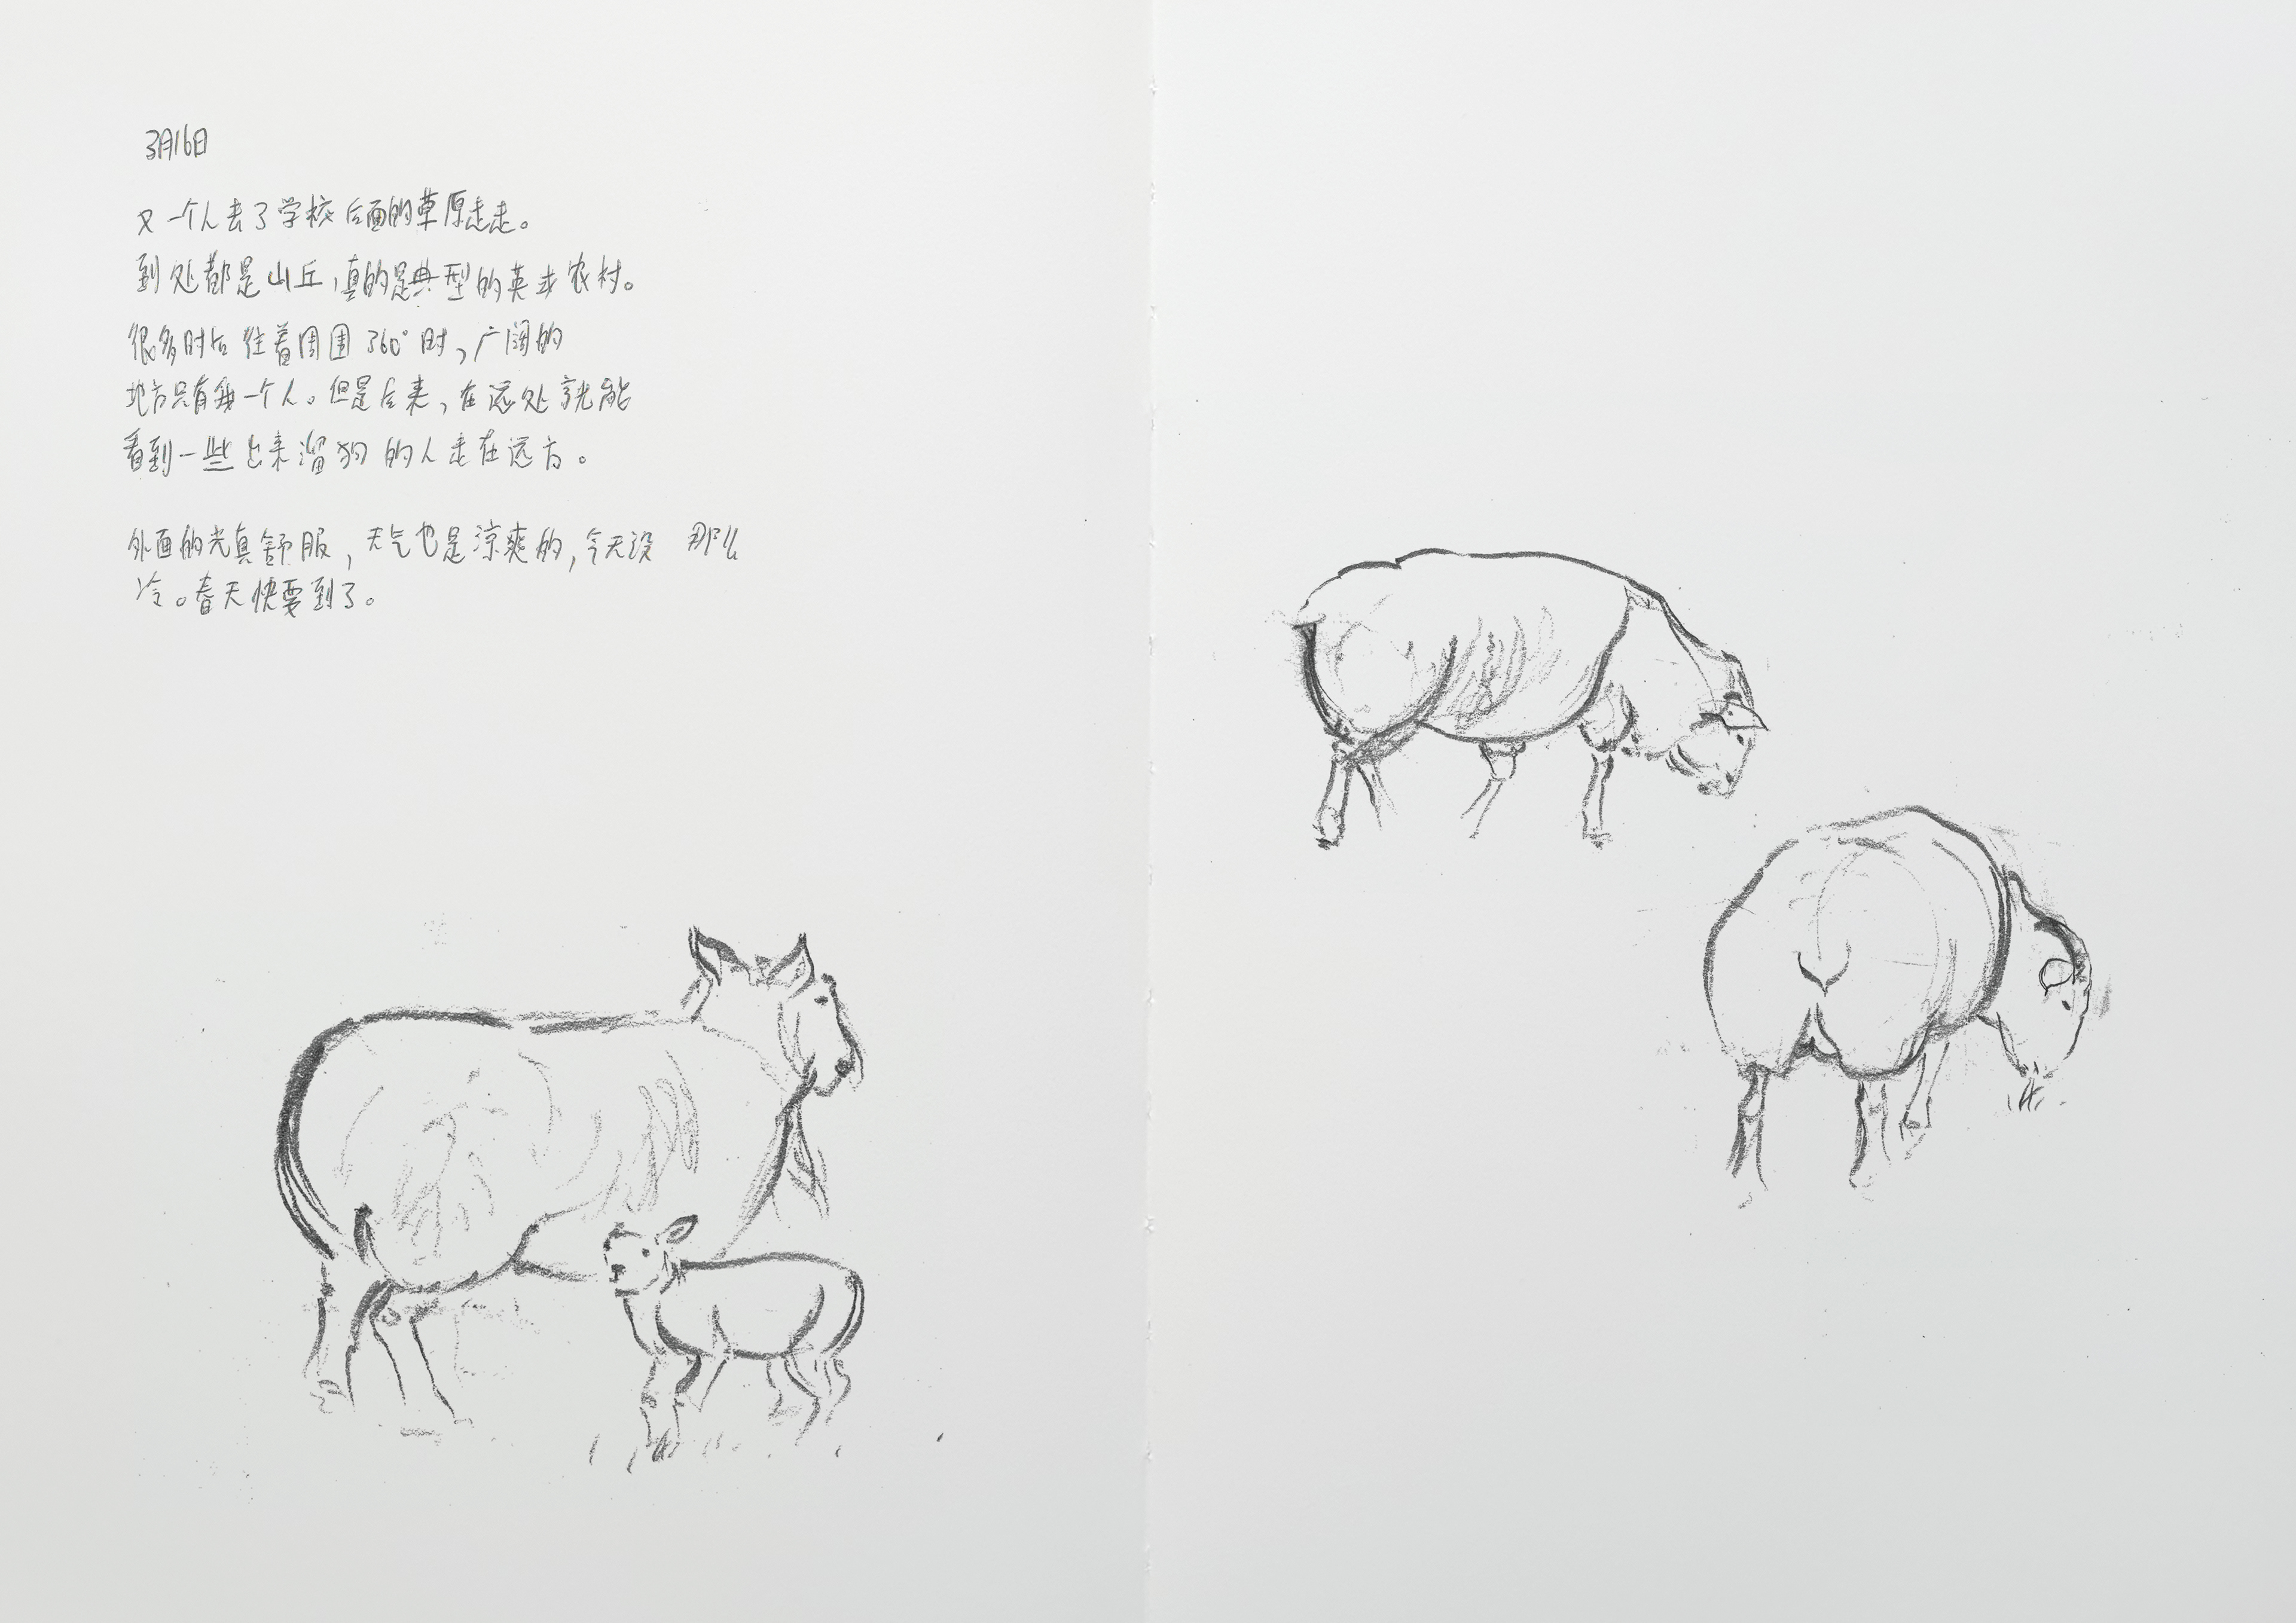 3月16日
又一个人去了学校后面的草原走走。
到处都是山丘，真的是典型的英式农村。
很多时后往着周围360°时，广阔的
地方只有我一个人。但是后来，在远处就能
看到一些出来溜狗的人走在远方。
外面的光真舒服，天气也是凉爽的，今天没 那么
冷。春天快要到了。